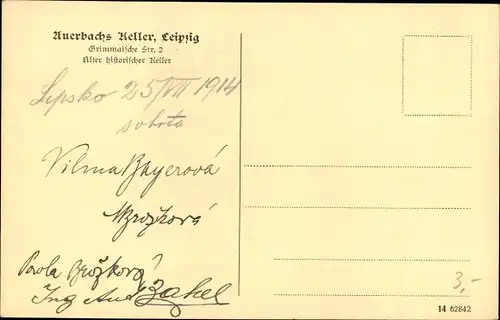 Auerbachs Keller, Leipzig
Grimmaische Str. 2
Alter historischer Keller
Lipsko 25/VII 1914
sobota
Vilma Bayerová
MBrožková
Pavla Brožková
Ing
3,-
14 62842